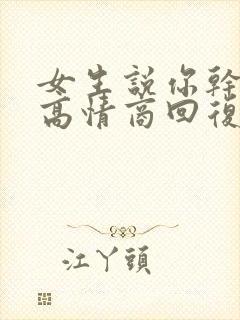 女生說你幹
高情商回復
江丫頭